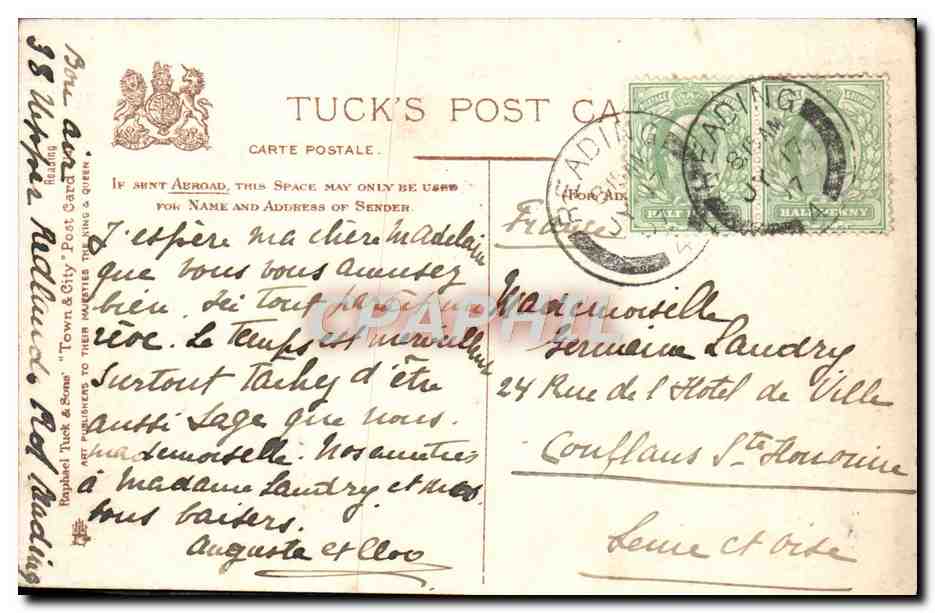 TUCK'S POST CA
CARTE POSTALE.
IF SENT ABROAD, THIS SPACE MAY ONLY BE USED
FOR NAME AND ADDRESS OF SENDER.
(FOR AD
France
J'espère ma chère Madelaine
que vous vous amusez
bien. Ici tout parait un
rêve. Le temps est merveilleux
surtout tachez d'être
aussi sage que nous.
mademoiselle. Nos amitiés
à Madame Landry et
bons baisers.
Auguste et
Mademoiselle
Germaine Landry
24 Rue de l'Hotel de Ville
Conflans Ste Honorine
Seine et Oise
READING
8 15 AM
JN 17
7
4
READING
8 15 AM
JN 17
4
HALF PENNY
HALF PENNY
CPAPHIL
Raphael Tuck & Sons' "Town & City" Post Card
Reading
ART PUBLISHERS TO THEIR MAJESTIES THE KING & QUEEN
38 Upper Redlands Rd Reading